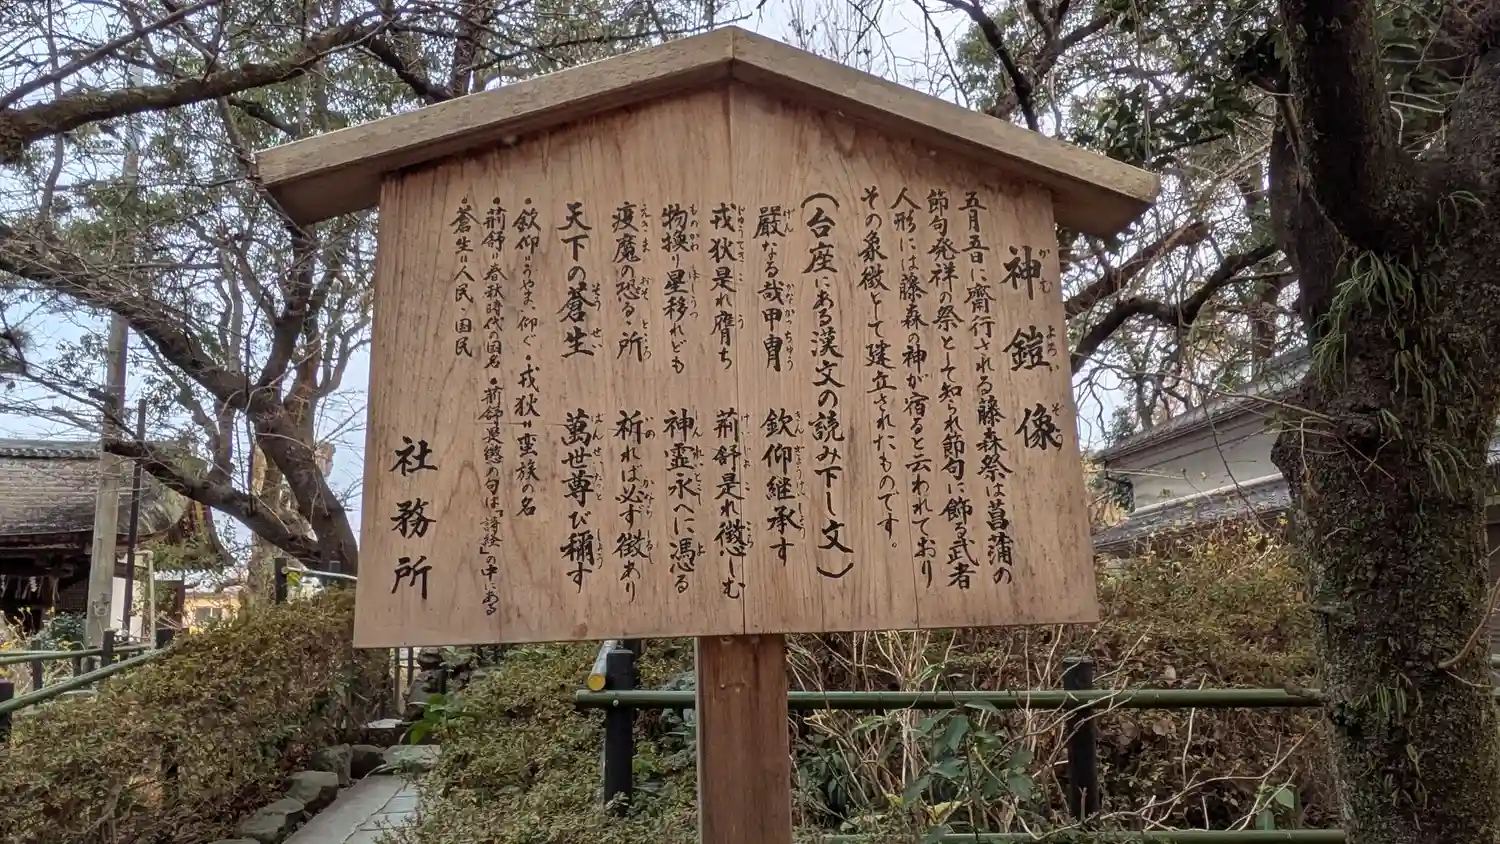 神鎧像
五月五日に齋行される藤森祭は菖蒲の
節句発祥の祭として知られ節句に飾る武者
人形には藤森の神が宿ると云われており
その象徴として建立されたものです。
(台座にある漢文の読み下し文)
嚴なる哉甲冑 欽仰継承す
戎狄是れ膺ち 荊舒是れ懲しむ
物換り星移れども 神霊永へに憑る
疫魔の恐る所 祈れば必ず徴あり
天下の蒼生 萬世尊び稱す
•欽仰=うやまい仰ぐ •戎狄=蛮族の名
•荊舒=春秋時代の国名 •荊舒是懲の句は「詩経」の中にある
•蒼生=人民、国民
社務所